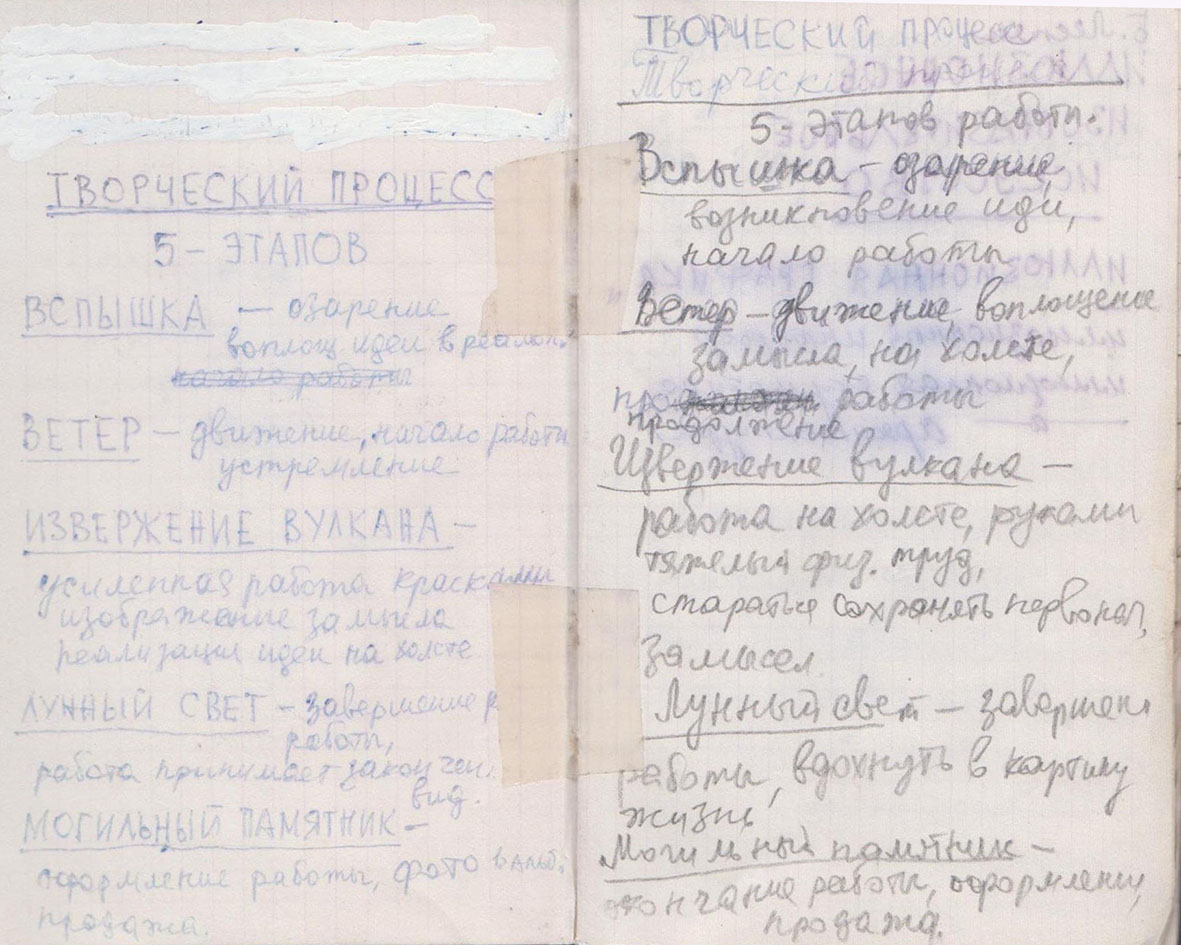 ТВОРЧЕСКИЙ ПРОЦЕСС
5 - ЭТАПОВ
ВСПЫШКА — озарение
воплощ идеи в реальн.
начало работы
ВЕТЕР — движение, начало работы
устремление
ИЗВЕРЖЕНИЕ ВУЛКАНА —
усиленная работа красками
изображение замысла
реализация идеи на холсте
ЛУННЫЙ СВЕТ — завершение
работы,
работа принимает закончен.
вид.
МОГИЛЬНЫЙ ПАМЯТНИК —
оформление работы, фото в альб.
продажи.
ТВОРЧЕСКИЙ процесс
Творческий процесс
5 - этапов работы.
Вспышка — озарение,
возникновение идеи,
начало работы
Ветер — движение, воплощение
замысла, на холсте,
работы
продолжение
Извержение вулкана —
работа на холсте, руками
тяжелый физ. труд,
старатье сохранять первонач,
замысел
Лунный свет — завершен
работы, вдохнуть в картину
жизнь
Могильный памятник —
окончание работы, оформлении,
продажа.